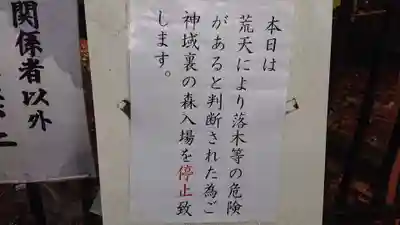 本日は
荒天により落木等の危険
があると判断された為ご
神域裏の森入場を停止致
します。
関係者以外